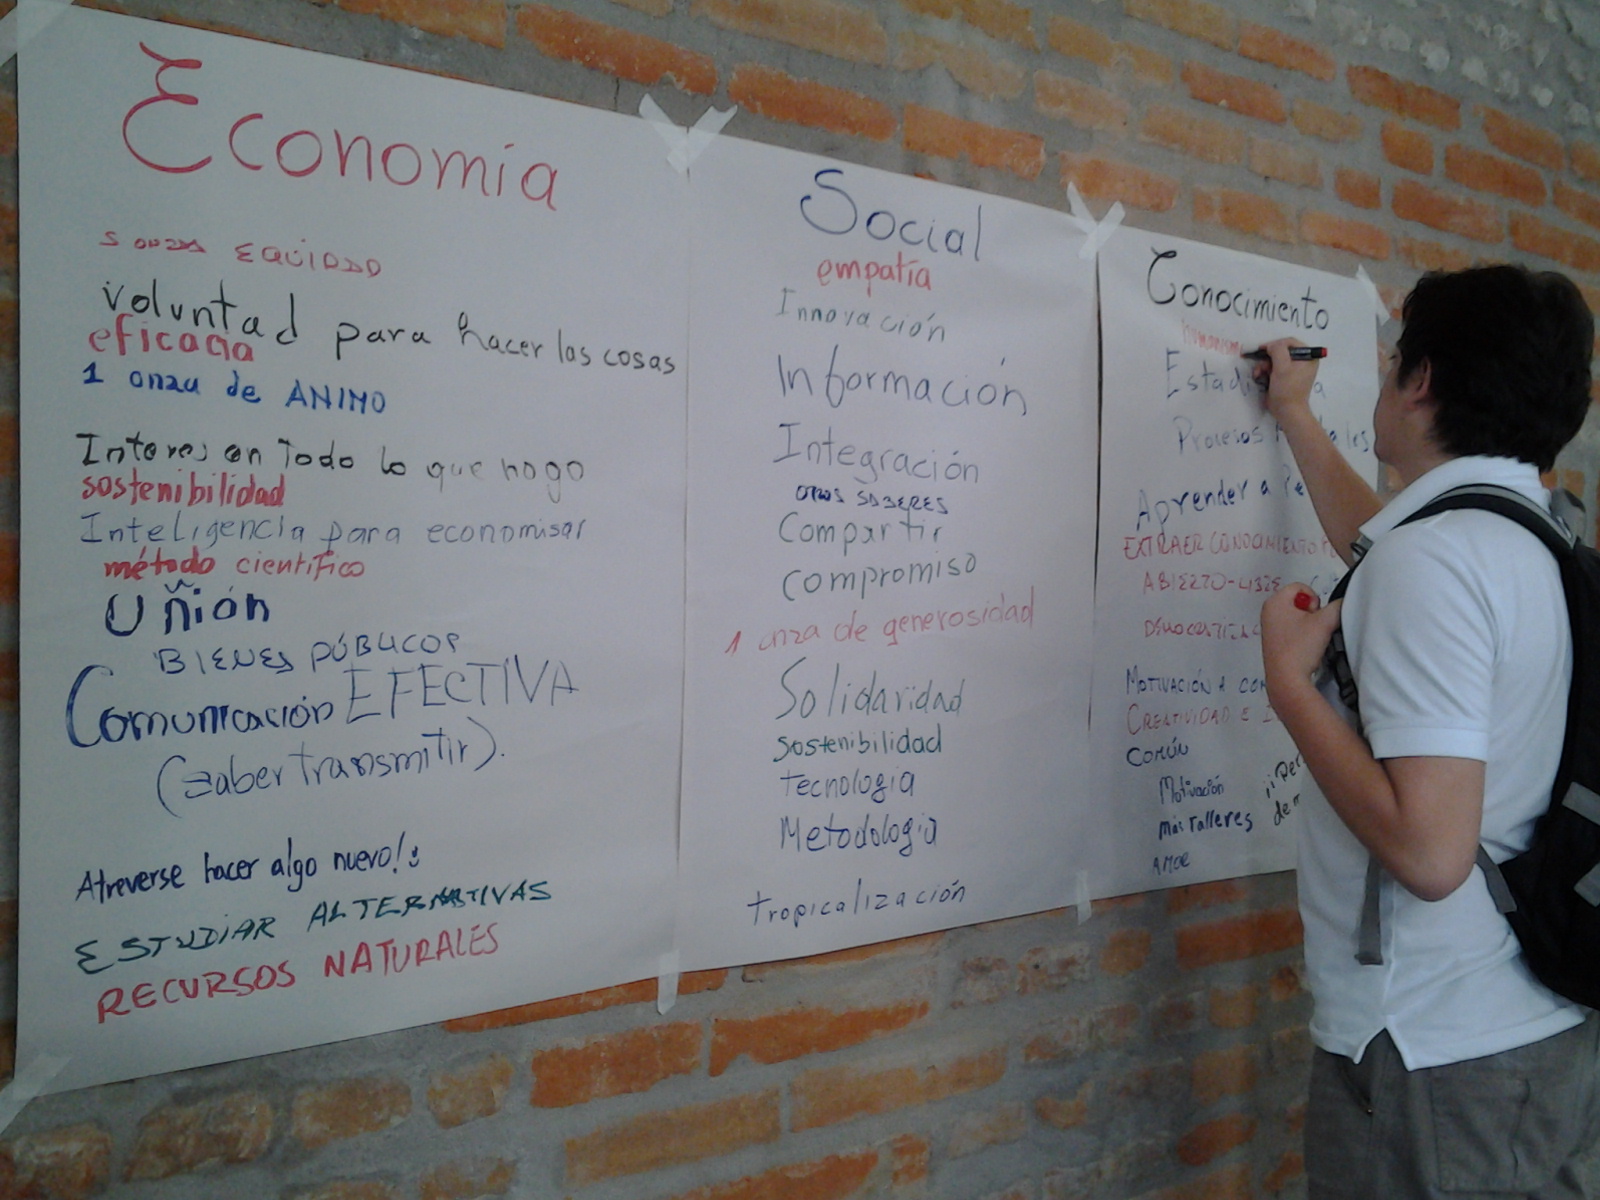 Economía
5 onzas EQUIDAD
Voluntad para hacer las cosas
eficacia
1 onza de ANIMO
Interes en Todo lo que hago
sostenibilidad
Inteligencia para economisar
método científico
Uñión
BIENES PÚBLICOS
Comunicación EFECTIVA
(saber transmitir).
Atreverse hacer algo nuevo!
ESTUDIAR ALTERNATIVAS
RECURSOS NATURALES
Social
empatía
Innovación
Información
Integración
OTROS SABERES
Compartir
compromiso
1 onza de generosidad
Solidaridad
sostenibilidad
tecnologia
Metodologia
tropicalización
Conocimiento
humanismo
Procesos
Aprender a
EXTRAER CONOCIMIENTO
ABIERTO-LIBRE
MOTIVACIÓN A
CREATIVIDAD E
COMÚN
Motivación
más Talleres
AMOR